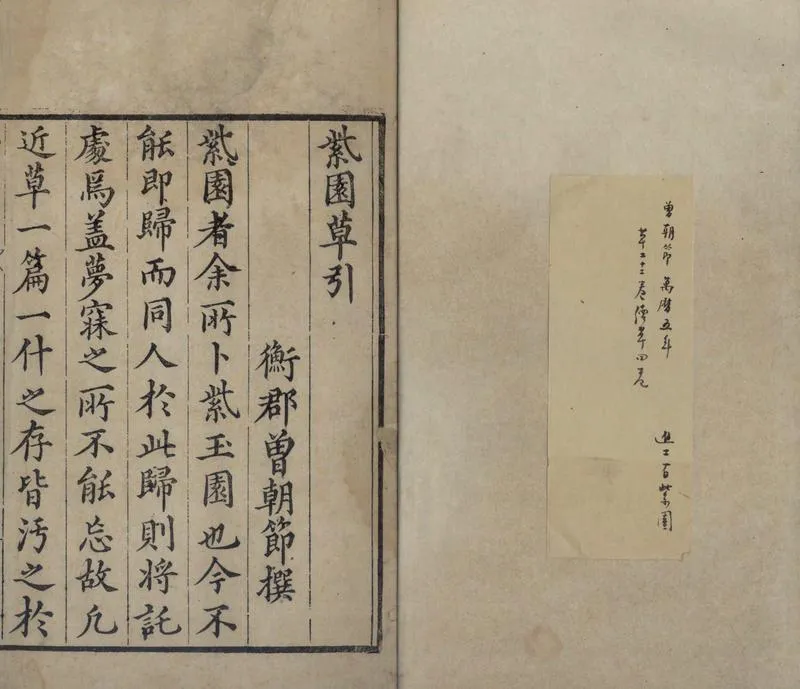 曾朝節 萬曆五年 進士有紫園
草二十二卷續草四卷
紫園草引
衡郡曾朝節撰
紫園者余所卜紫玉園也今不
能即歸而同人於此歸則將託
處焉盖夢寐之所不能忘故凡
近草一篇一什之存皆污之於